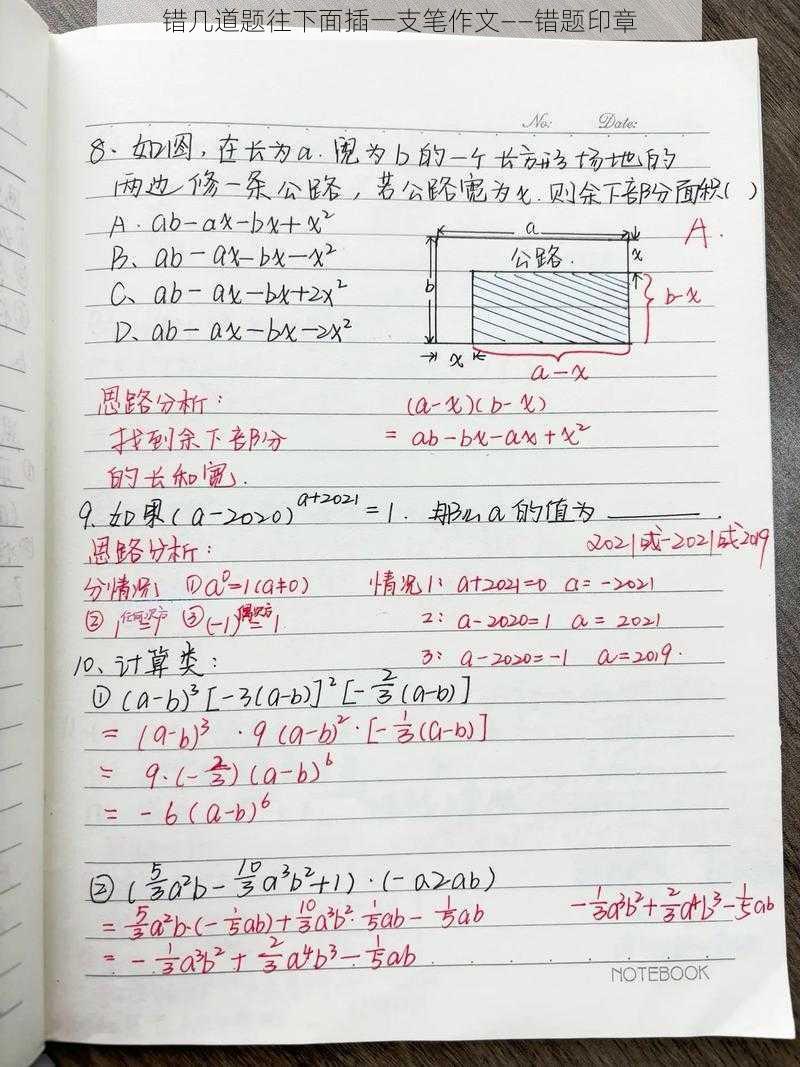 错几道题往下面插一支笔作文——错题印章
No:          Date:
8、如图，在长为a.宽为b的一个长方形场地的
两边修一条公路，若公路宽为x.则余下部分面积(  )
A. ab-ax-bx+x²
A.
B、ab-ax-bx-x²
C、ab-ax-bx+2x²
D、ab-ax-bx-2x²
a
公路.
x
b
b-x
x
a-x
思路分析：
(a-x)(b-x)
找到余下部分
= ab-bx-ax+x²
的长和宽.
9.如果(a-2020)^(a+2021)=1.那么a的值为______.
2021或-2021或2019
思路分析：
分情况：①a⁰=1(a≠0)
情况1：a+2021=0  a=-2021
② 1^任何次方=1  ③(-1)^偶次方=1
2：a-2020=1  a=2021
3：a-2020=-1  a=2019.
10、计算类：
①(a-b)³[-3(a-b)]²[-2/3(a-b)]
= (a-b)³·9(a-b)²·[-1/3(a-b)]
= 9·(-2/3)(a-b)⁶
= -6(a-b)⁶
②(5/3a²b-10/3a³b²+1)·(-a2ab)
= 5/3a²b·(-1/5ab)+10/3a³b²·1/5ab-1/5ab
-1/3a³b²+2/3a⁴b³-1/5ab
= -1/3a³b²+2/3a⁴b³-1/5ab
NOTEBOOK